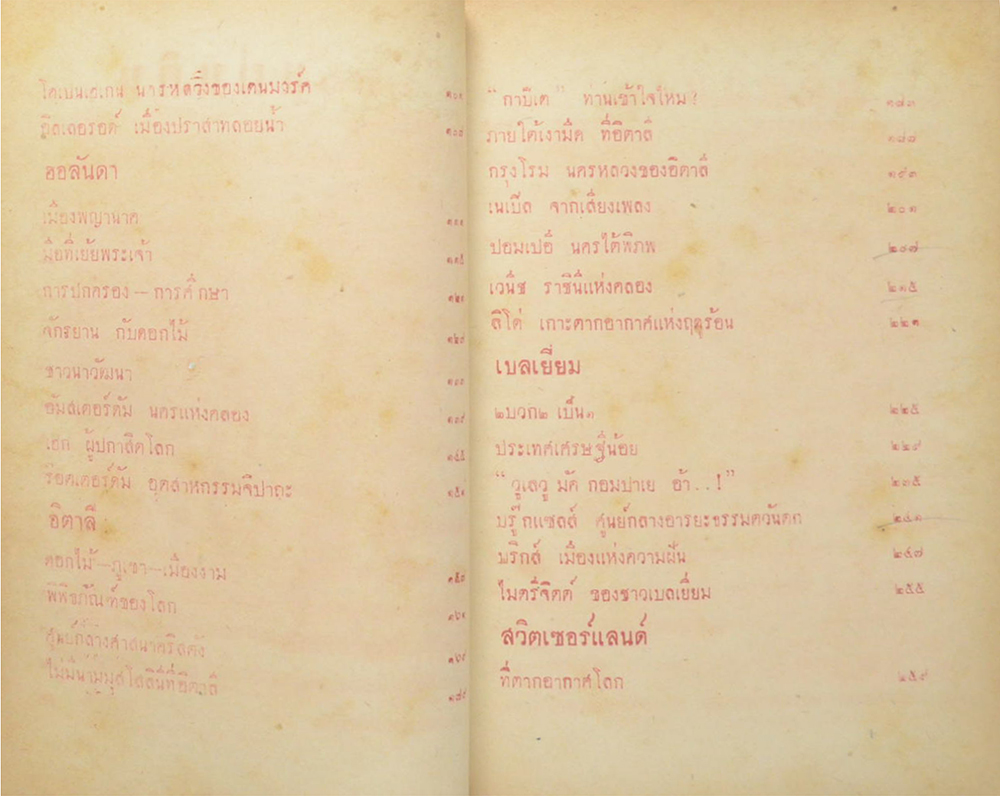 โคเปนเฮเกน นครหลวงของเดนมาร์ค
ฮิลเลอรอด์ เมืองปราสาทลอยน้ำ
ฮอลันดา
เมืองพญานาค
มือที่เย้ยพระเจ้า
การปกครอง – การศึกษา
จักรยาน กับดอกไม้
ชาวนาวัฒนา
อัมสเตอร์ดัม นครแห่งคลอง
เฮก ผู้ปกาสิตโลก
ร๊อตเตอร์ดัม อุตสาหกรรมจิปาถะ
อิตาลี
ดอกไม้–ภูเขา–เมืองงาม
พิพิธภัณฑ์ของโลก
ศูนย์กลางศาสนาคริสตัง
ไม่มีน้ำมีมุสโสลินีที่อิตาลี
“ กาปิเต ” ท่านเข้าใจไหม? ๑๘๓
ภายใต้เงามืด ที่อิตาลี ๑๘๘
กรุงโรม นครหลวงของอิตาลี ๑๙๓
เนเปิ้ล จากเสียงเพลง ๒๐๑
ปอมเปอี นครใต้พิภพ ๒๐๗
เวนิช ราชินีแห่งคลอง ๒๑๕
ลิโด่ เกาะตากอากาศแห่งฤดูร้อน ๒๒๑
เบลเยี่ยม
๒บวก๒ เป็น๓ ๒๒๕
ประเทศเศรษฐีน้อย ๒๒๙
“ วูเลวู มัคํ กอมปาเย อ้า . . ! ” ๒๓๕
บรู๊กแซลส์ ศูนย์กลางอารยะธรรมตวันตก ๒๔๑
บริกส์ เมืองแห่งความฝัน ๒๔๗
ไมตรีจิตต์ ของชาวเบลเยี่ยม ๒๕๕
สวิตเซอร์แลนด์
ที่ตากอากาศโลก ๒๕๙